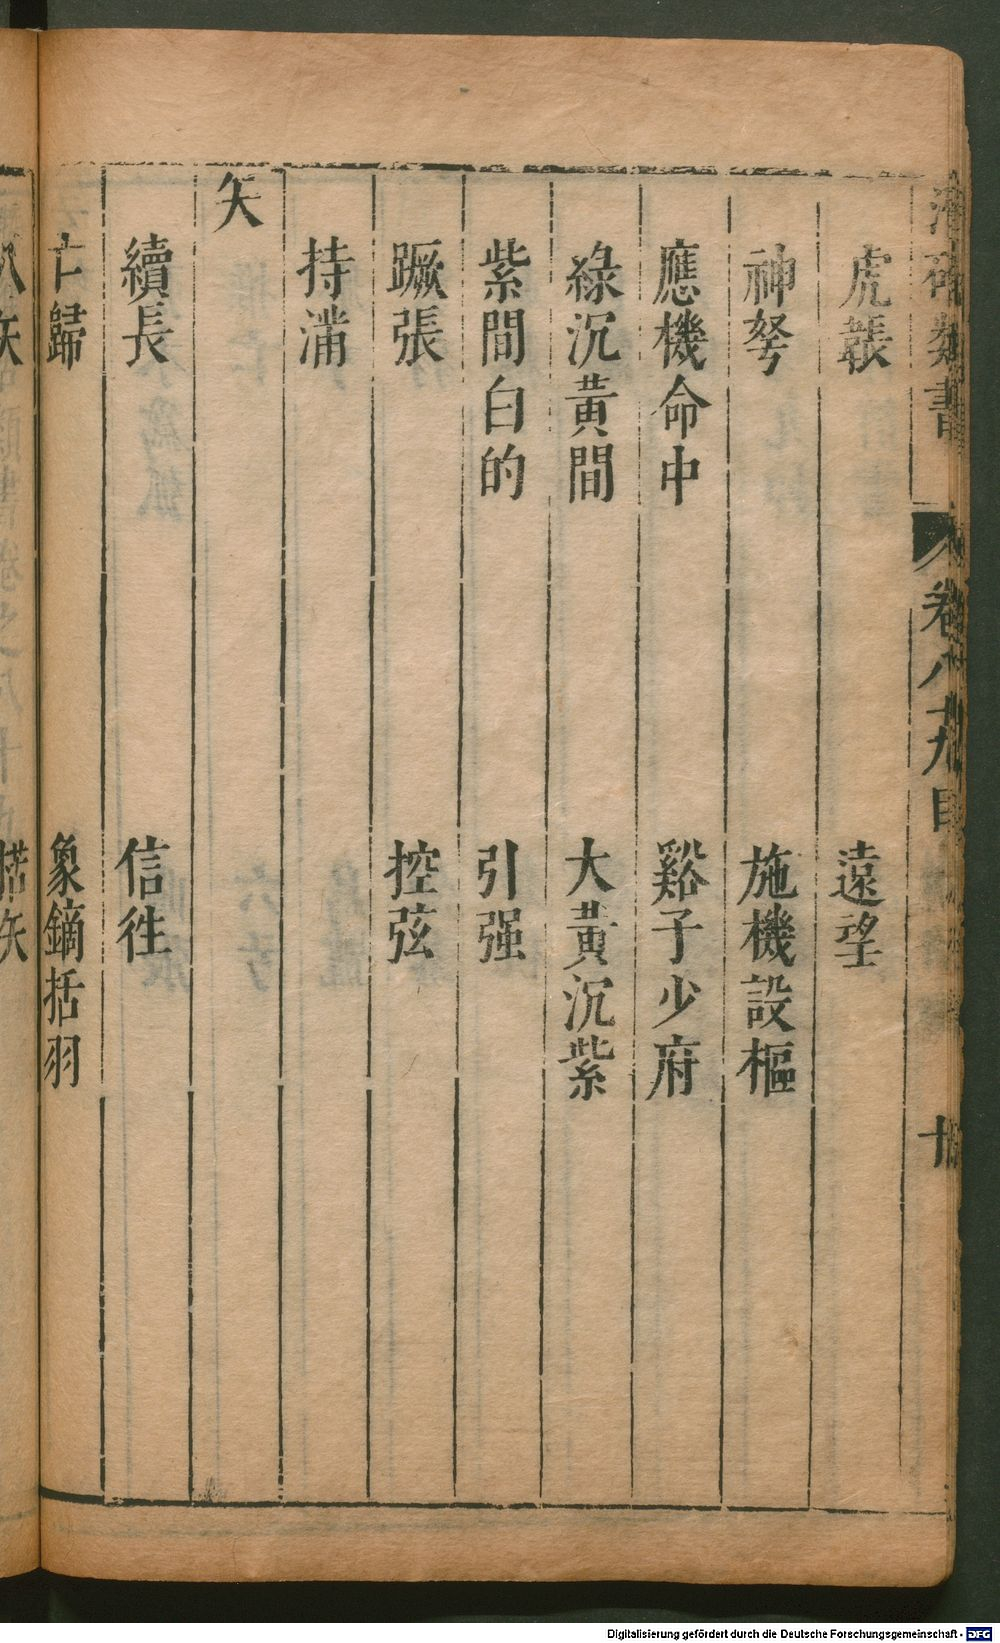 類書
卷八十九目
虎韔
遠望
神弩
施機設樞
應機命中
谿子少府
綠沉黃間
大黃沉紫
紫間白的
引强
蹶張
控弦
持滿
矢
續長
信往
亡歸
象鏑括羽
八矢
楛矢
Digitalisierung gefördert durch die Deutsche Forschungsgemeinschaft - DFG